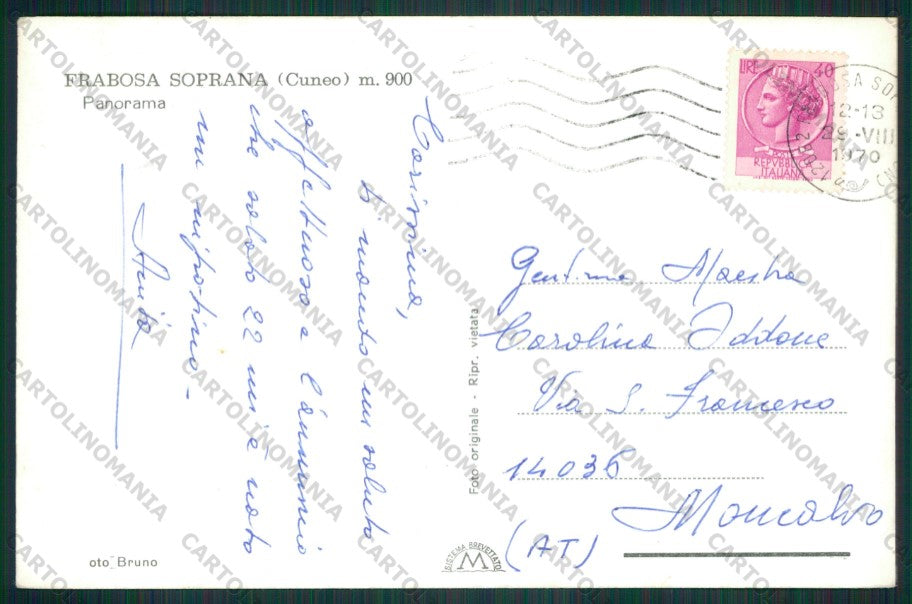 FRABOSA SOPRANA (Cuneo) m. 900
Panorama
Carissima,
ti mando un saluto
affettuoso e l'annuncio
che sabato 22 mi è nato
un nipotino -
Anita
Foto originale - Ripr. vietata
LIRE 40
REPVBBLICA
ITALIANA
12-13
29-VIII
1970
Gent.ma Maestra
Carolina Iddone
Via S. Francesco
14036
Moncalvo
(AT)
oto Bruno
SISTEMA BREVETTATO
M
CARTOLINOMANIA